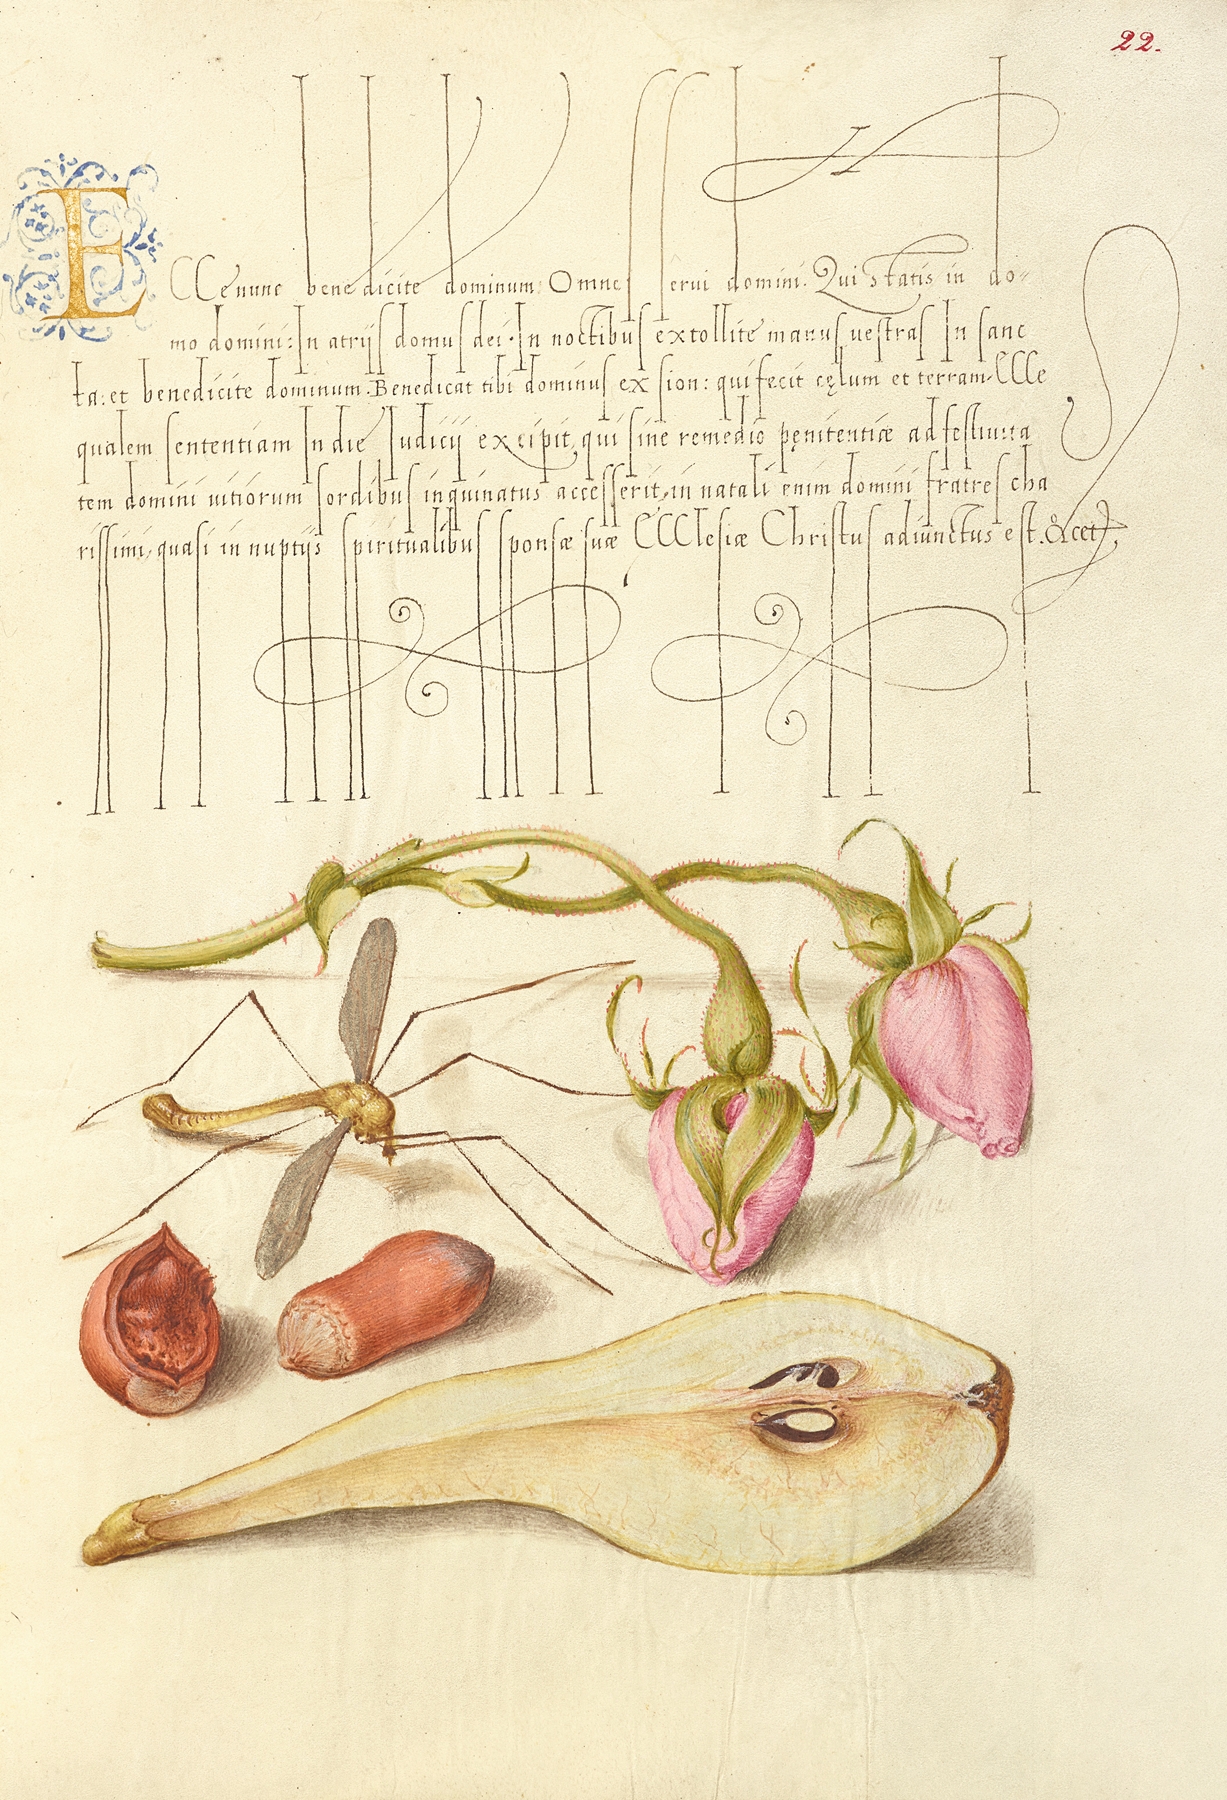 22.
ECCe nunc benedicite dominum: Omnes servi domini. Qui statis in do-
mo domini: In atrijs domus dei. In noctibus extollite manus vestras In sanc
ta: et benedicite dominum. Benedicat tibi dominus ex sion: qui fecit cęlum et terram. CCCe
qualem sententiam In die Iudicij excipit, qui sine remedio pęnitentiæ ad festiuita
tem domini uitiorum sordibus inquinatus accesserit, in natali enim domini fratres cha
rissimi, quasi in nuptijs spiritualibus sponsæ suæ CCClesiæ Christus adiunctus est. &cet.